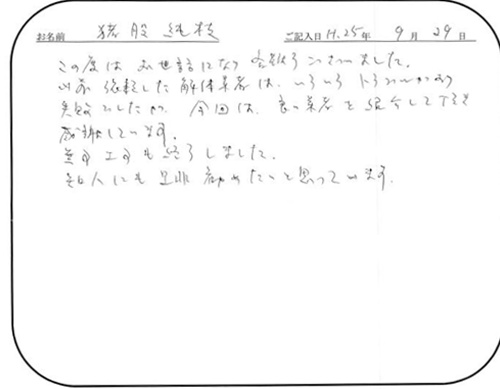 お名前 猪股 純枝 ご記入日 H.25年 9月29日
この度は お世話になり 有難うございました。
以前 依頼した 解体業者は、いろいろ トラブルがあり
失敗でしたが、今回は、良い業者を紹介して下さり
感謝しています。
無事 工事も終了しました。
知人にも 是非 勧めたいと思っています。